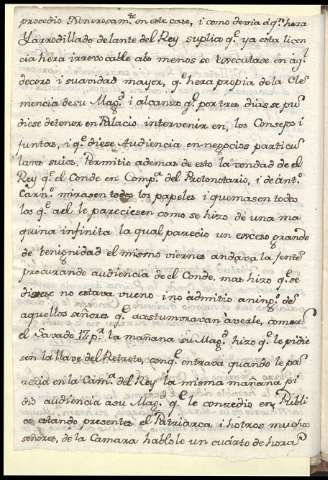 procedio Rinerosam.te en este caso, i como devia a q.e hera
Y arrodillado delante del Rey suplico q.e ya esta licen
cia hera irrevocable alo menos se executase con aq.l
decoro i suavidad mayor, q.e hera propia de la Cle
mencia de su Mag.d i alcanzo q.e por tres dias se pu
diese detener en Palacio intervenir en, los Consejos i
Juntas, i q.e diese Audiencia en negocios particu
lares suios. Permitio ademas de esto la vondad de el
Rey q.e el Conde en Comp.a del Protonotario, i de Ant.o
Carn.o mirasen todos los papeles i quemasen todos
los q.e a el le pareciesen como se hizo de una ma
quina infinita la qual parecio un exceso grande
de venignidad el mismo viernes andava la Jente
procurando audiencia de el Conde, mas hizo q.e se
dixese no estava vueno i no admitio a ning.o de
aquellos señores q.e acostumravan a verle, como
el Savado 17 p.r la mañana su Mag.d hizo q.e le pidie
sen la llave del Retrete, con q.e entrava quando le pa
recia en la Cam.a del Rey la misma mañana pi
dio audiencia a su Mag.d q.e le concedio en Publi
co estando presentes el Patriarca i hotros muchos
señores, de la Camara hablole un cuarto de hora